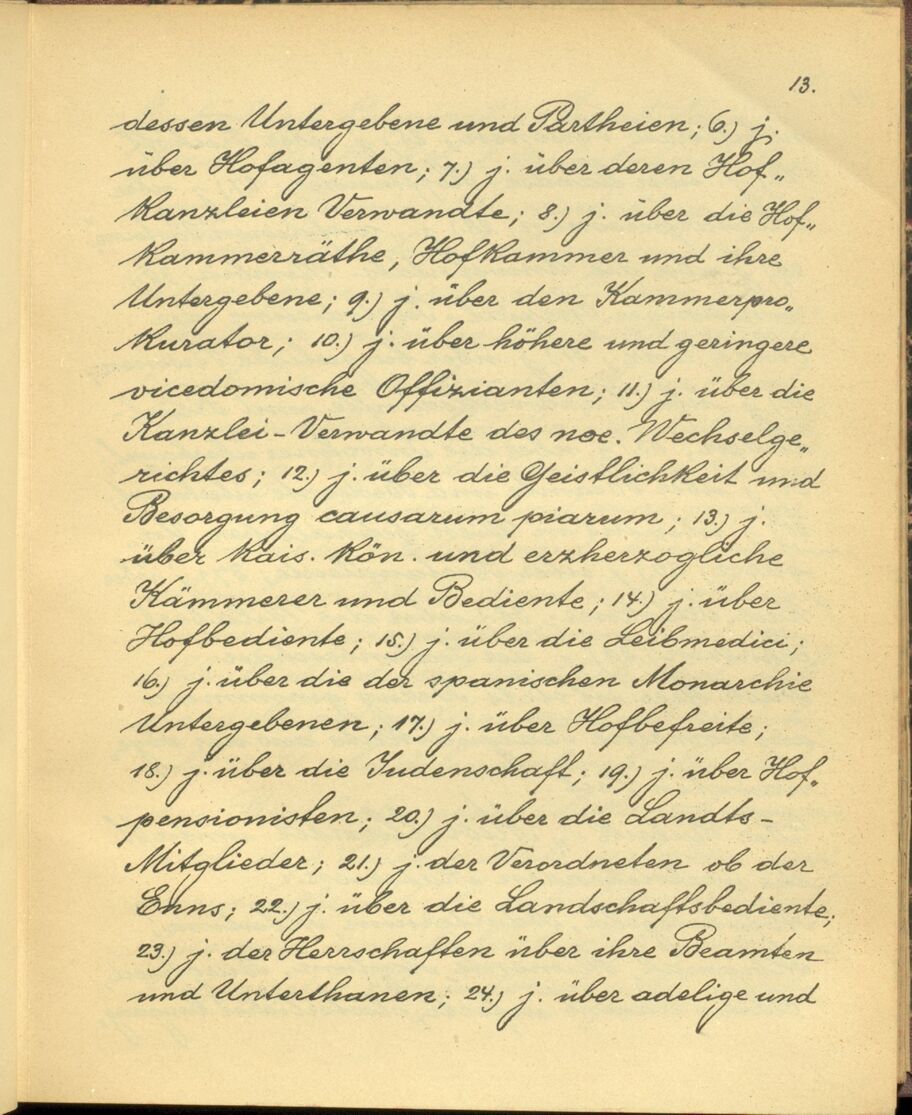 13.
dessen Untergebene und Partheien; 6.) j.
über Hofagenten; 7.) j. über deren Hof„
kanzleien Verwandte; 8.) j. über die Hof„
kammerräthe, Hofkammer und ihre
Untergebene; 9.) j. über den Kammerpro„
kurator; 10.) j. über höhere und geringere
vicedomische Offizianten; 11.) j. über die
Kanzlei-Verwandte des noe. Wechselge„
richtes; 12.) j. über die Geistlichkeit und
Besorgung causarum piarum; 13.) j.
über kais. kön. und erzherzogliche
Kämmerer und Bediente; 14.) j. über
Hofbediente; 15.) j. über die Leibmedici;
16.) j. über die der spanischen Monarchie
Untergebenen; 17.) j. über Hofbefreite;
18.) j. über die Judenschaft; 19.) j. über Hof„
pensionisten; 20.) j. über die Landts-
Mitglieder; 21.) j. der Verordneten ob der
Enns; 22.) j. über die Landschaftsbediente;
23.) j. der Herrschaften über ihre Beamten
und Unterthanen; 24.) j. über adelige und